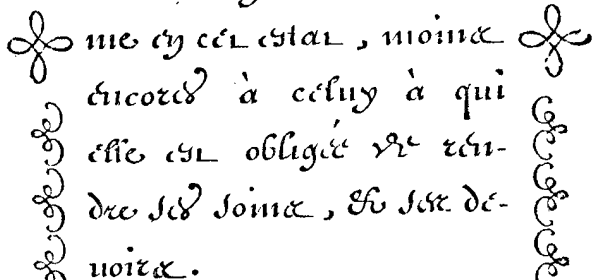 me en cet estat, moins
encores à celuy à qui
elle est obligée de ren-
dre ses soins, & ses de-
uoirs.